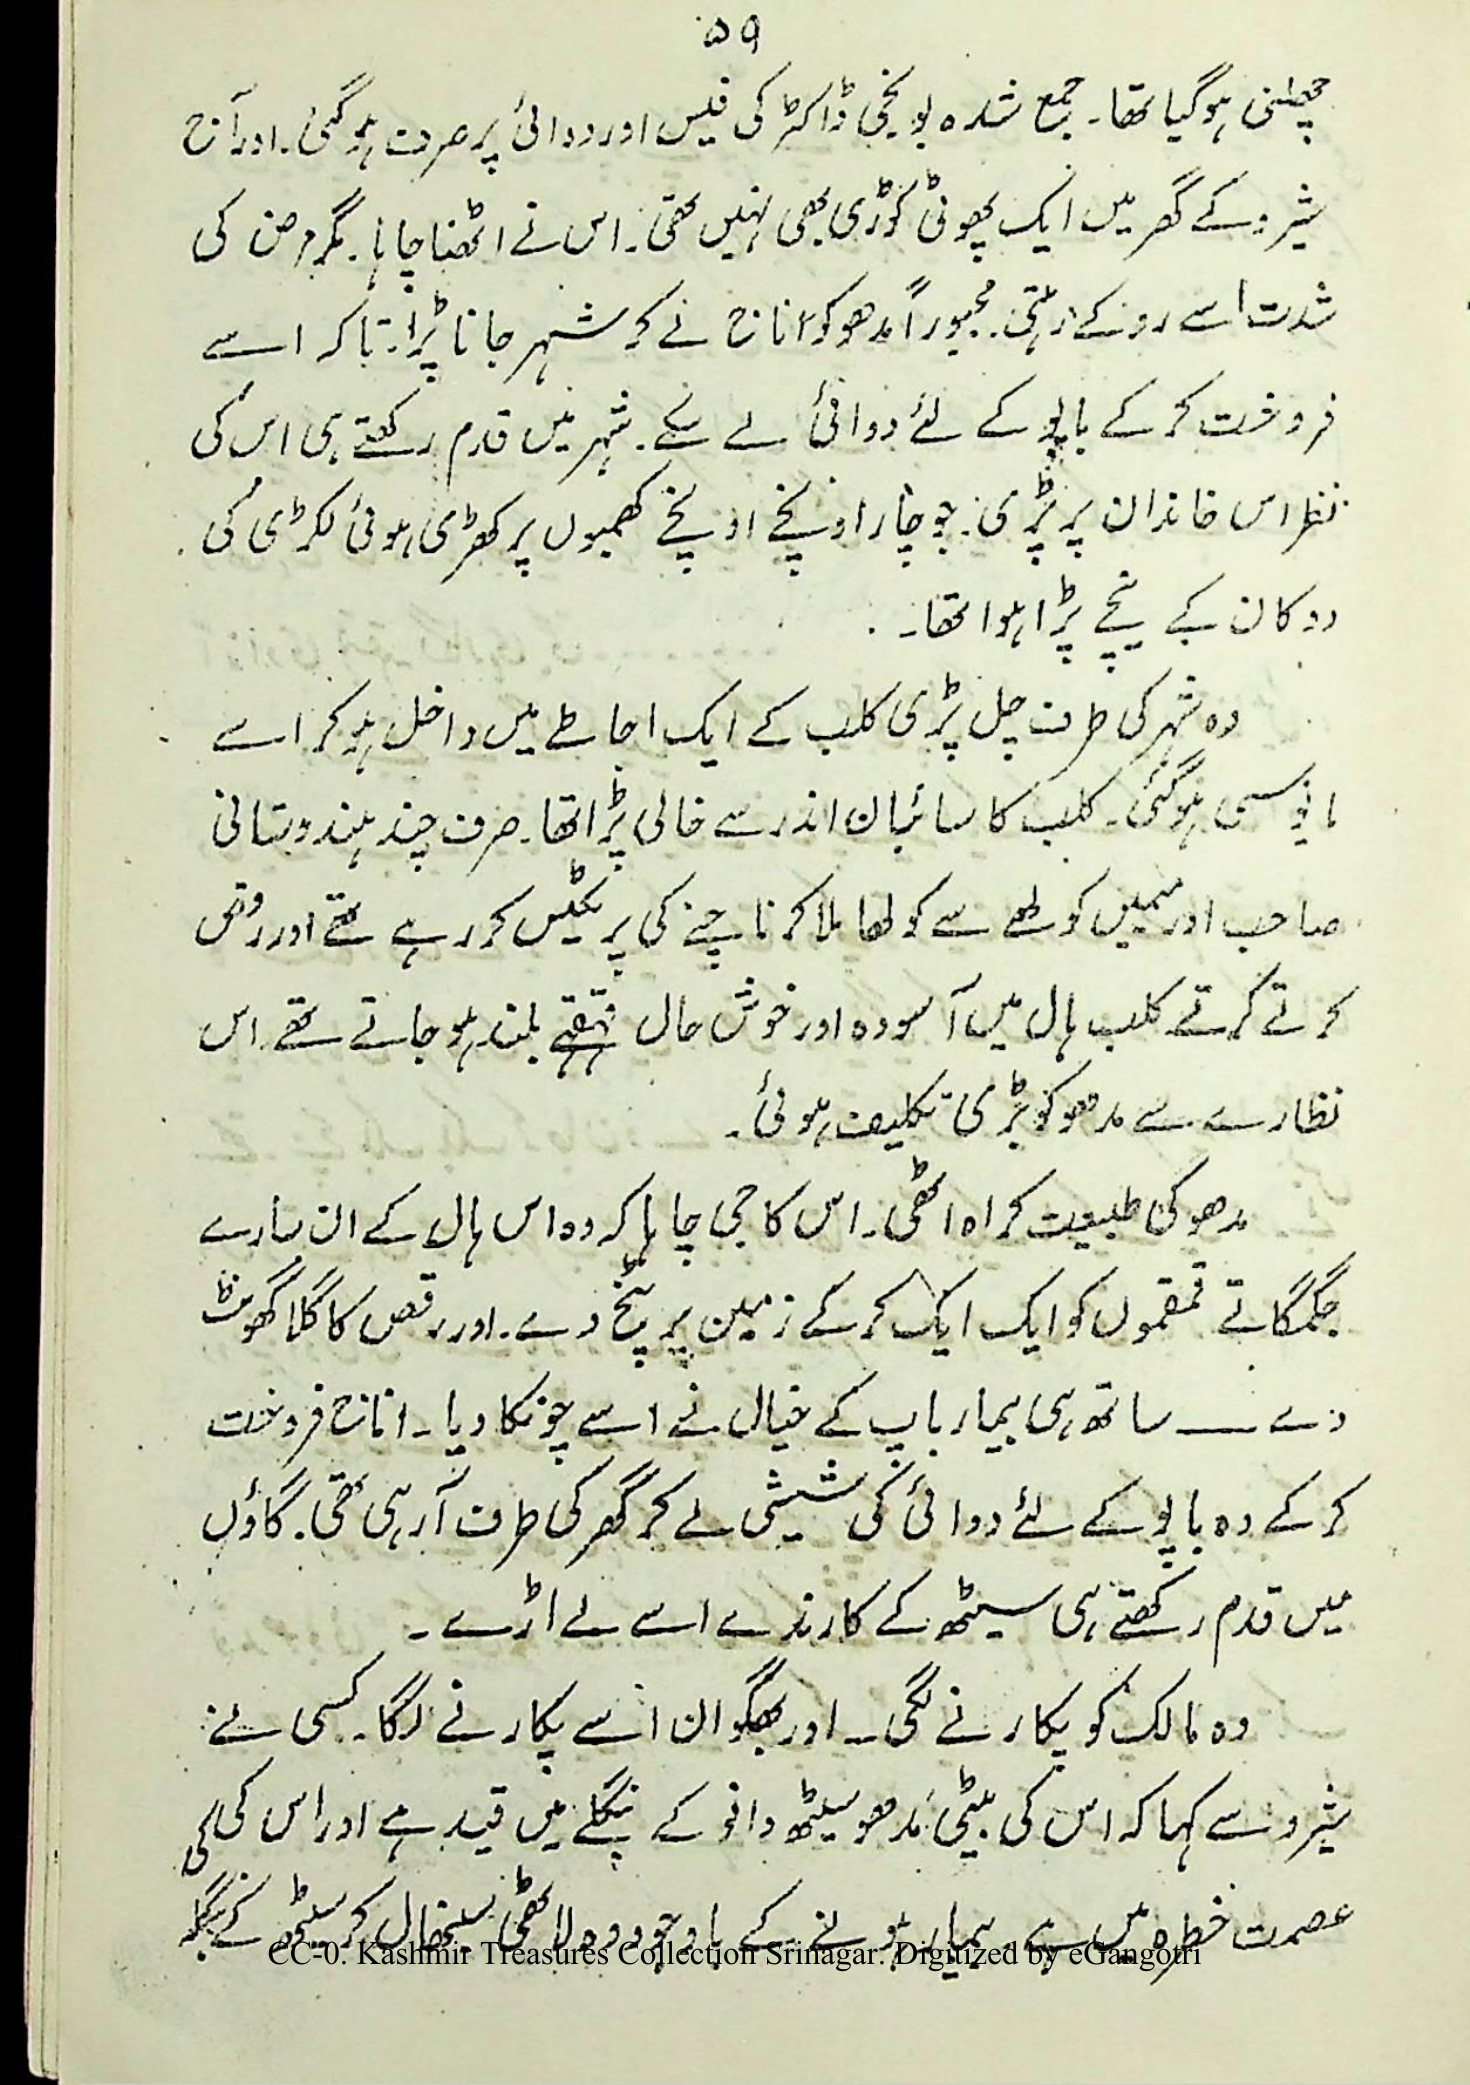 ۵۹
چھلنی ہوگیا تھا۔ جمع شدہ پونجی ڈاکٹر کی فیس اور دوائی پر صرف ہوگئی۔ اور آج
شیرو کے گھر میں ایک پھوٹی کوڑی بھی نہیں تھی۔ اس نے اٹھنا چاہا۔ مگر مرض کی
شدت اسے روکے رہتی۔ مجبوراً مدھو کو اناج لے کر شہر جانا پڑا۔ تاکہ اسے
فروخت کر کے باپو کے لئے دوائی لے سکے۔ شہر میں قدم رکھتے ہی اس کی
نظر اس خاندان پر پڑی۔ جو چار اونچے اونچے کھمبوں پر کھڑی ہوئی لکڑی کی
دوکان کے نیچے پڑا ہوا تھا۔
وہ شہر کی طرف چل پڑی کلب کے ایک احاطے میں داخل ہو کر اسے
مایوسی ہوگئی۔ کلب کا سائبان اندر سے خالی پڑا تھا۔ صرف چند ہندوستانی
صاحب اور میمیں کولھے سے کولھا ملا کر ناچنے کی پریکٹیس کر رہے تھے اور رقص
کرتے کرتے کلب ہال میں آسودہ اور خوش حال قہقہے بلند ہو جاتے تھے۔ اس
نظارے سے مدھو کو بڑی تکلیف ہوئی۔
مدھو کی طبیعت کراہ اٹھی۔ اس کا جی چاہا کہ وہ اس ہال کے ان سارے
جگمگاتے قمقموں کو ایک ایک کر کے زمین پر پٹخ دے۔ اور رقص کا گلا گھونٹ
دے ــــ ساتھ ہی بیمار باپ کے خیال نے اسے چونکا دیا۔ اناج فروخت
کر کے وہ باپو کے لئے دوائی کی شیشی لے کر گھر کی طرف آ رہی تھی۔ گاؤں
میں قدم رکھتے ہی سیٹھ کے کارندے اسے لے اڑے۔
وہ مالک کو پکارنے لگی ــ اور بھگوان اسے پکارنے لگا۔ کسی نے
شیرو سے کہا کہ اس کی بیٹی مدھو سیٹھ دانو کے بنگلے میں قید ہے اور اس کی
عصمت خطرہ میں ہے۔ بیمار ہونے کے باوجود وہ لاٹھی سنبھال کر سیٹھ کے
CC-0. Kashmir Treasures Collection Srinagar. Digitized by eGangotri